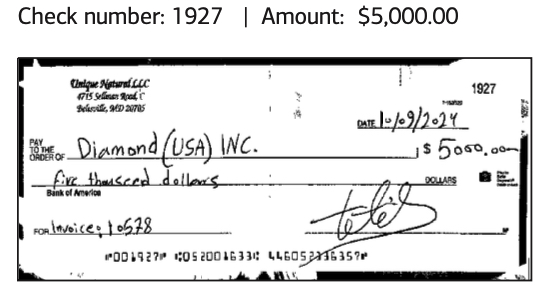 Check number: 1927 | Amount: $5,000.00
Unique Natural LLC
4715 Sellman Road,
Beltsville, MD 20705
1927
DATE 10/09/2024
PAY TO THE ORDER OF Diamond (USA) INC. $ 5000.00
five thousand dollars DOLLARS
Bank of America
FOR Invoice: 10578
⑈001927⑈ ⑆052001633⑆ 446052336357⑈